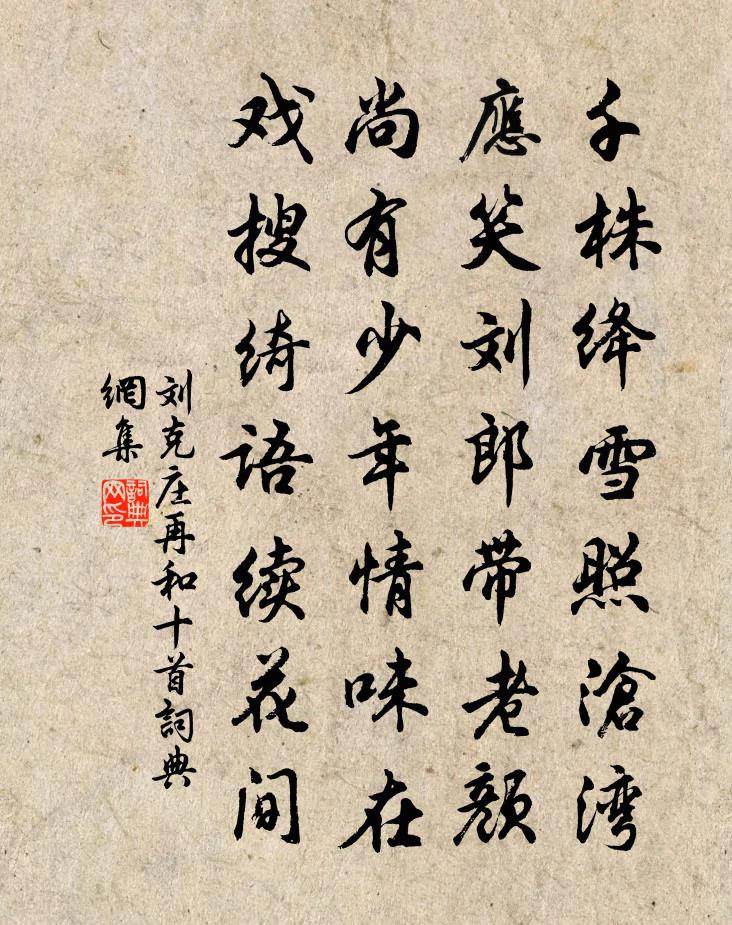 千株绛雪照滄湾
應笑刘郎带老颜
尚有少年情味在
戏搜绮语续花间
刘克庄再和十首詞典
網集
詞典网印